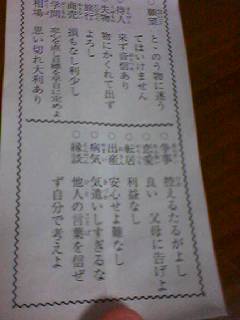 願望 とゝのう物に迷う
てはいけません
待人 来ず音信あり
失物 物にかくれて出ず
旅行 よろし
商売 損もなし利少し
学問 目標を早目に定めよ
相場 思い切れ大利あり
○争事 がよし
○恋愛 良い 父母に告げよ
○転居 利益なし
○出産 安心せよ難なし
○病気 気遣いしすぎるな
○縁談 他人の言葉を信ぜ
ず自分で考えよ